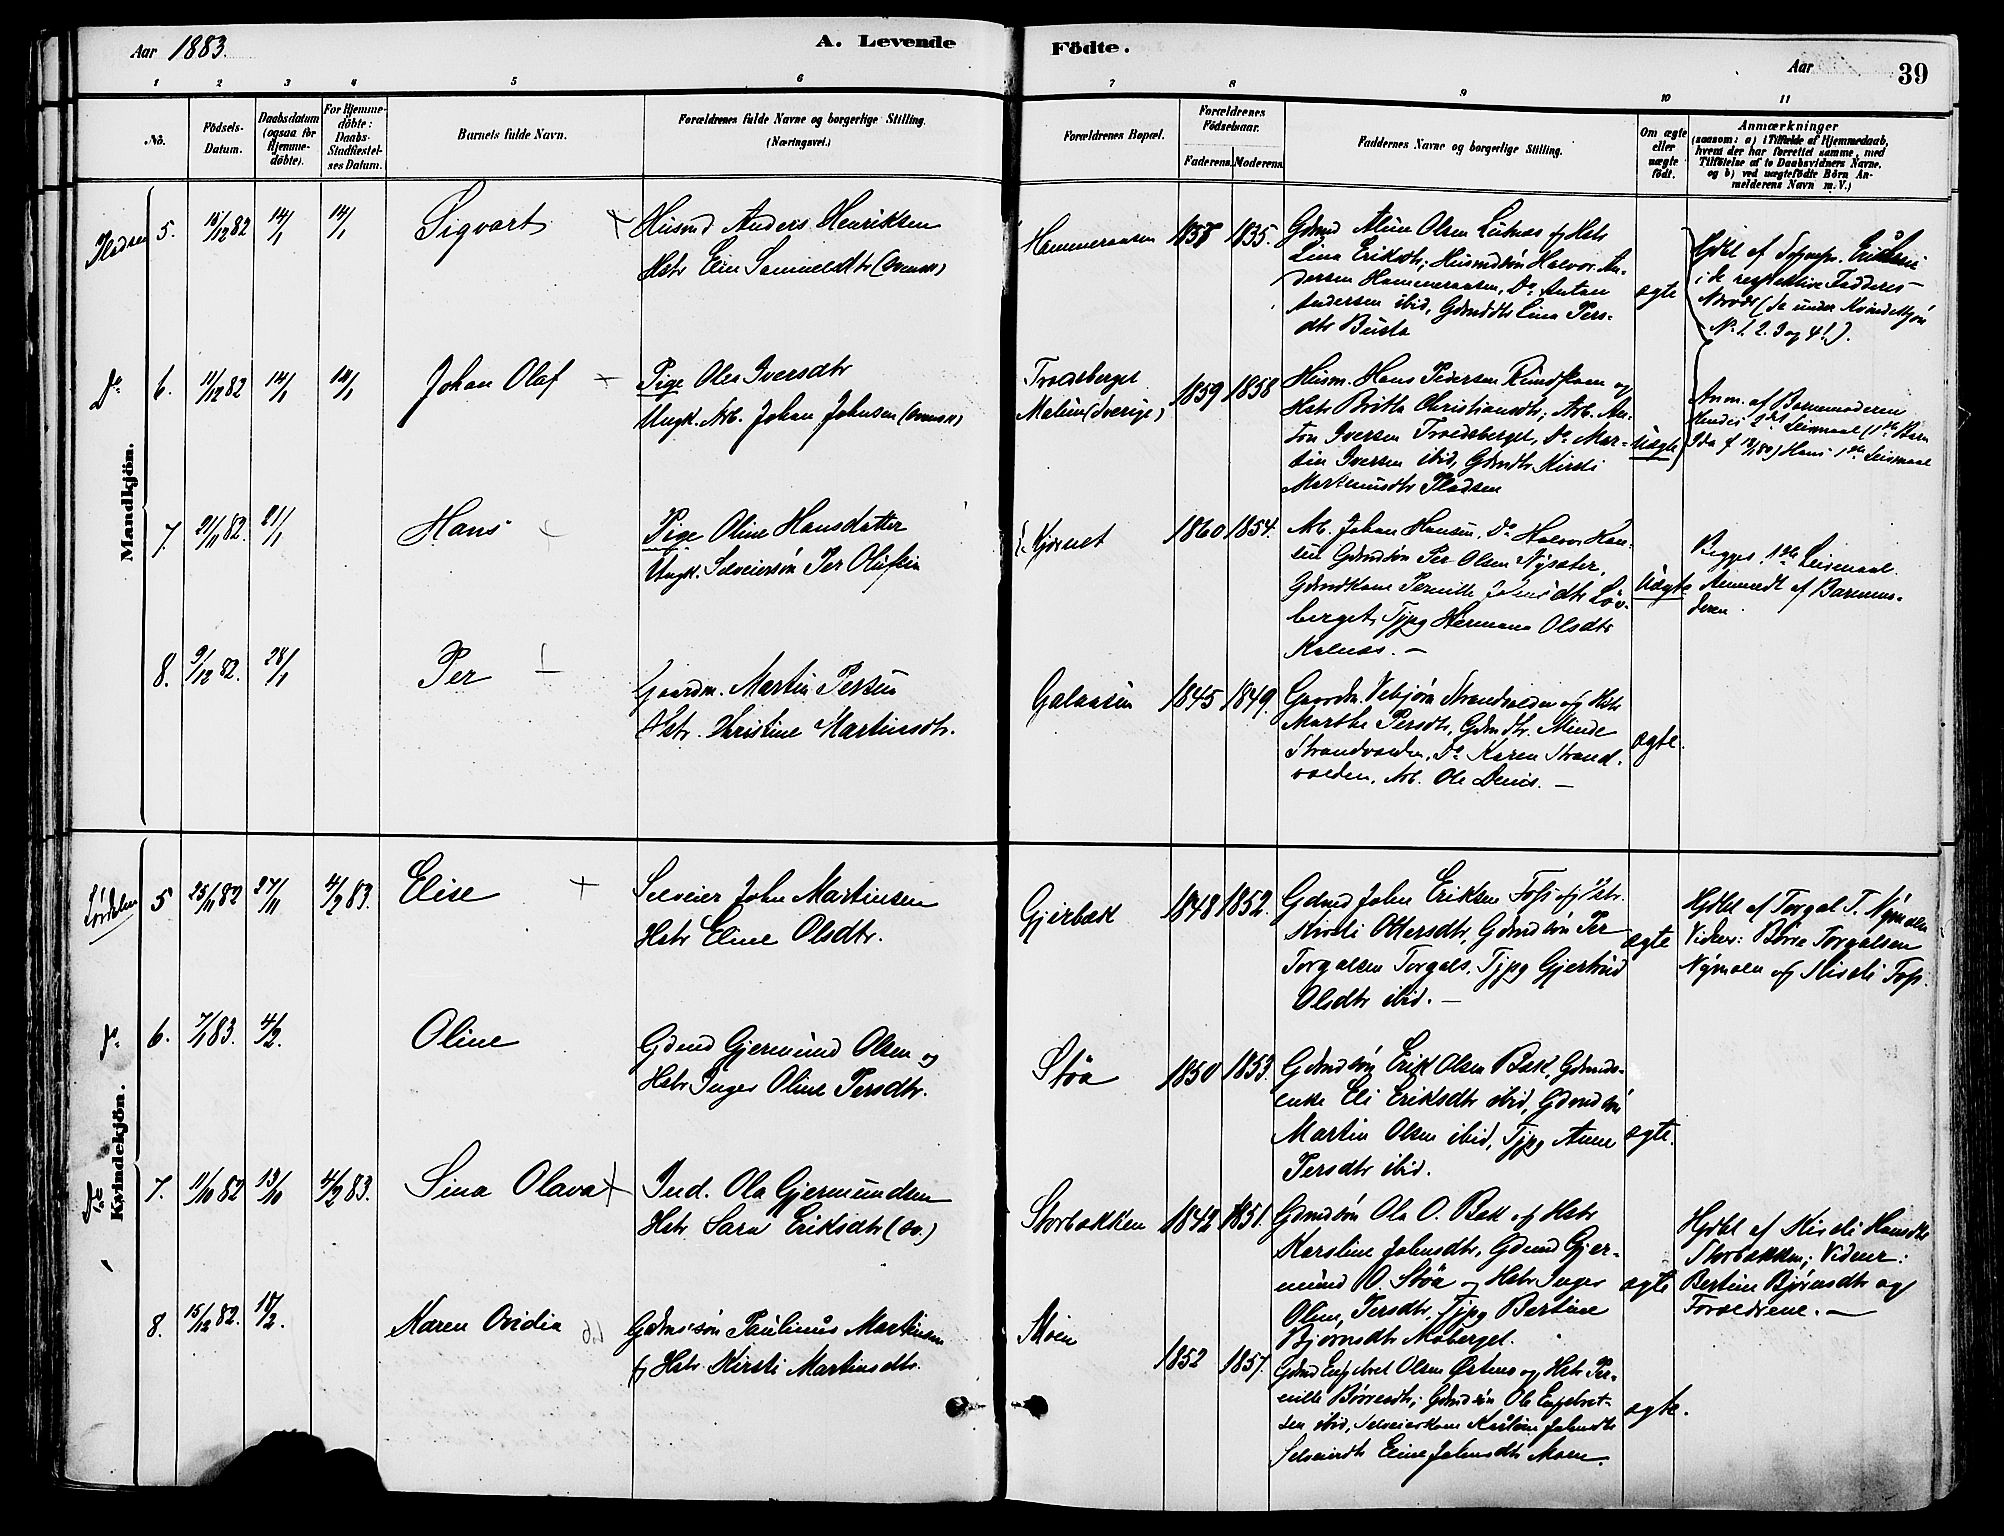 Aar 1883.
A. Levende
Födte.
Aar
39
1 2 3 4 5 6 7 8 9 10 11
No.
Födsels-
Datum.
Daabsdatum
(ogsaa for
Hjemme-
döbte).
For Hjemme-
döbte:
Daabs-
Stadfæstel-
ses Datum.
Barnets fulde Navn.
Forældrenes fulde Navne og borgerlige Stilling.
(Næringsvei.)
Forældrenes Bopæl.
Forældrenes
Födselsaar.
Faderens. Moderens.
Faddernes Navne og borgerlige Stilling.
Om ægte
eller
uægte
födt.
Anmærkninger
(saasom: a) i Tilfælde af Hjemmedaab,
hvem der har forrettet samme, med
Tilföielse af to Daabsvidners Navne,
og b) ved uægtefödte Börn An-
melderens Navn m. V.)
Mandkjön.
5. 12 82 14/1 14/1
Sigvart
Husmd Anders Henriksen
Hstr Elin Samuelsdtr (svensk)
Hammeraasen
1835.
Lina Eriksdtr; Husmdsön Halvor An-
dersen Hammeraasen, Do Anton
Andersen ibid, Gdmdtr Lina Pers-
dtr
ægte
No 1. 2. 3 og 4!).
Do 6. 11/12 82 14/1 14/1
Johan Olaf
Pige Olea Iversdtr
Ungk. Arb. Johan Johnsen (svensk)
Troedsberget
(Sverige)
1859 1858
Husm. Hans Pedersen
Hstr Britta Christiansdtr; Arb. An-
ton Iversen Troedsberget, Do Mar-
tin Iversen ibid, Gdmdtr Kirsti
Martinusdtr Pladsen
Uægte
Anm. af Barnemoderen
7. 21/11 82. 21/1
Hans
Pige Oline Hansdatter
Ungk. Selveiersön Per
Kjernet
1860 1854.
Arb. Johan Hansen, Do Halvor Han-
sen Gdmdsön Per Olsen Nysæter,
Gdmdkone Pernille
berget, Tjpg Hermana Olsdtr
Kalnæs. —
Uægte
Begges 1ste Leiermaal.
Anmeldt af Barnemo-
deren.
8. 9/12 82. 28/1
Per
Gaardm. Martin Persen
Hstr. Kristine Martinsdtr.
Galaasen
1845 1849.
Gaardm. Vebjörn Strandvolden og Hstr
Marthe Persdtr, Gdmdtr. Minda
Strandvolden, Do Karen Strand-
volden, Arb. Ole
ægte.
Kvindekjön.
5 25/11 82 27/11 4/2 83.
Elise
Selveier John Martinsen
Hstr Eline Olsdtr.
Gjerbæk
1848 1852.
Gdmd John Eriksen Foss og Hstr.
Kirsti Olsersdtr, Gdmdsön Per
Torgalsen Torgals, Tjpg Gjertrud
Olsdtr ibid. —
ægte
Hjdbt af Torgal T. Nymoen
Vidner: Börre Torgalsen
Nymoen og Kirsti Foss.
Do 6. 7/1 83. 4/2.
Oline
Gdmd Gjermund Olsen og
Hstr Inger Oline Persdtr.
Støa
1850 1853.
Gdmdsön Erik Olsen Bæk, Gdmds-
enke Eli Eriksdtr ibid, Gdmdsön
Martin Olsen ibid, Tjpg Anne
Persdtr ibid.
ægte.
7. 11/10 82 13/10 4/2 83.
Sina Olava
Ind. Ola Gjermundsen
Hstr Sara Eriksdtr (sv.)
Storbækken
1842 1851.
Gdmdsön Ola O. Bæk og Hstr
Karoline Johnsdtr, Gdmd Gjer-
mund O. Støa og Hstr Inger
Oline, Persdtr, Tjpg Bertine
Bjørnsdtr Moberget.
ægte
Hjdbt af Kirsti Hansdtr
Storbækken; Vidner:
Bertine Bjørnsdtr og
Forældrene. —
8. 15/12 82. 18/2.
Karen Ovidia
Gdmdsön Paulinus Martinsen
og Hstr Kirsti Martinsdtr.
Moen
1852 1857.
Gdmd Engebret Olsen og Hstr Per-
nille Börresdtr; Gdmdsön Ole Engebret-
sen ibid, Selveierkone Karoline Johnsdtr
Selveierdtr Eline Johnsdtr Moen.
ægte.